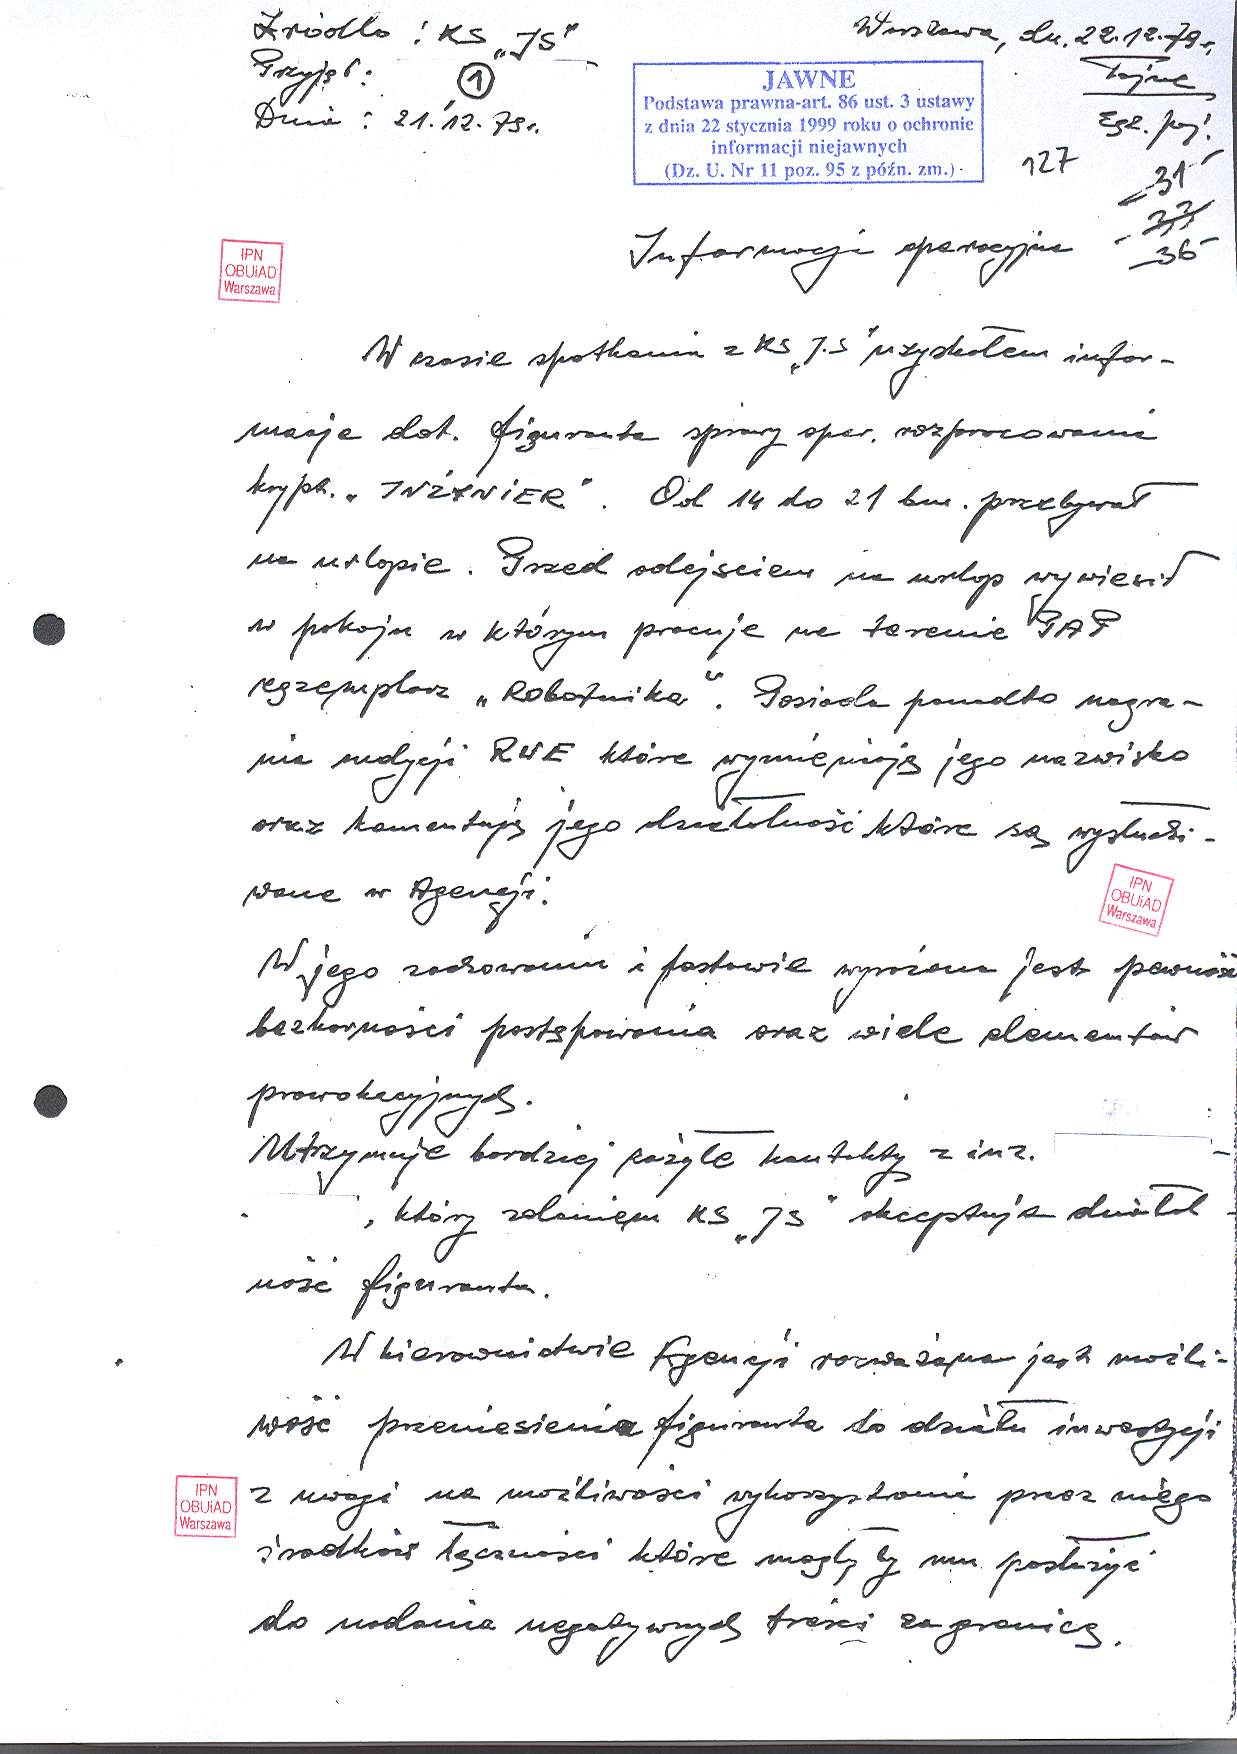 Źródło: KS „JS"
Warszawa, dn. 22.12.79r.
Przyjął:
①
Tajne
Dnia: 21.12.79r.
Egz. poj.
JAWNE
Podstawa prawna-art. 86 ust. 3 ustawy
z dnia 22 stycznia 1999 roku o ochronie
informacji niejawnych
(Dz. U. Nr 11 poz. 95 z późn. zm.)
127
31
36
IPN
OBUiAD
Warszawa
Informacja operacyjna
W czasie spotkania z KS „J.S" uzyskałem infor-
macje dot. figuranta sprawy oper. rozpracowania
krypt. „INŻYNIER". Od 14 do 21 bm. przebywał
na urlopie. Przed odejściem na urlop wywiesił
w pokoju w którym pracuje na terenie PAP
egzemplarz „Robotnika". Posiada ponadto nagra-
nia audycji RWE które wymieniają jego nazwisko
oraz komentują jego działalność które są wysłuchi-
wane w Agencji.
IPN
OBUiAD
Warszawa
W jego zachowaniu i postawie wyrażana jest pewność
bezkarności postępowania oraz wiele elementów
prowokacyjnych.
Utrzymuje bardziej zażyłe kontakty z inż.
, który zdaniem KS „JS" akceptuje działal-
ność figuranta.
W kierownictwie Agencji rozważana jest możli-
wość przeniesienia figuranta do działu inwestycji
z uwagi na możliwości wykorzystania przez niego
środków łączności które mogły by mu posłużyć
do nadania negatywnych treści za granicę.
IPN
OBUiAD
Warszawa